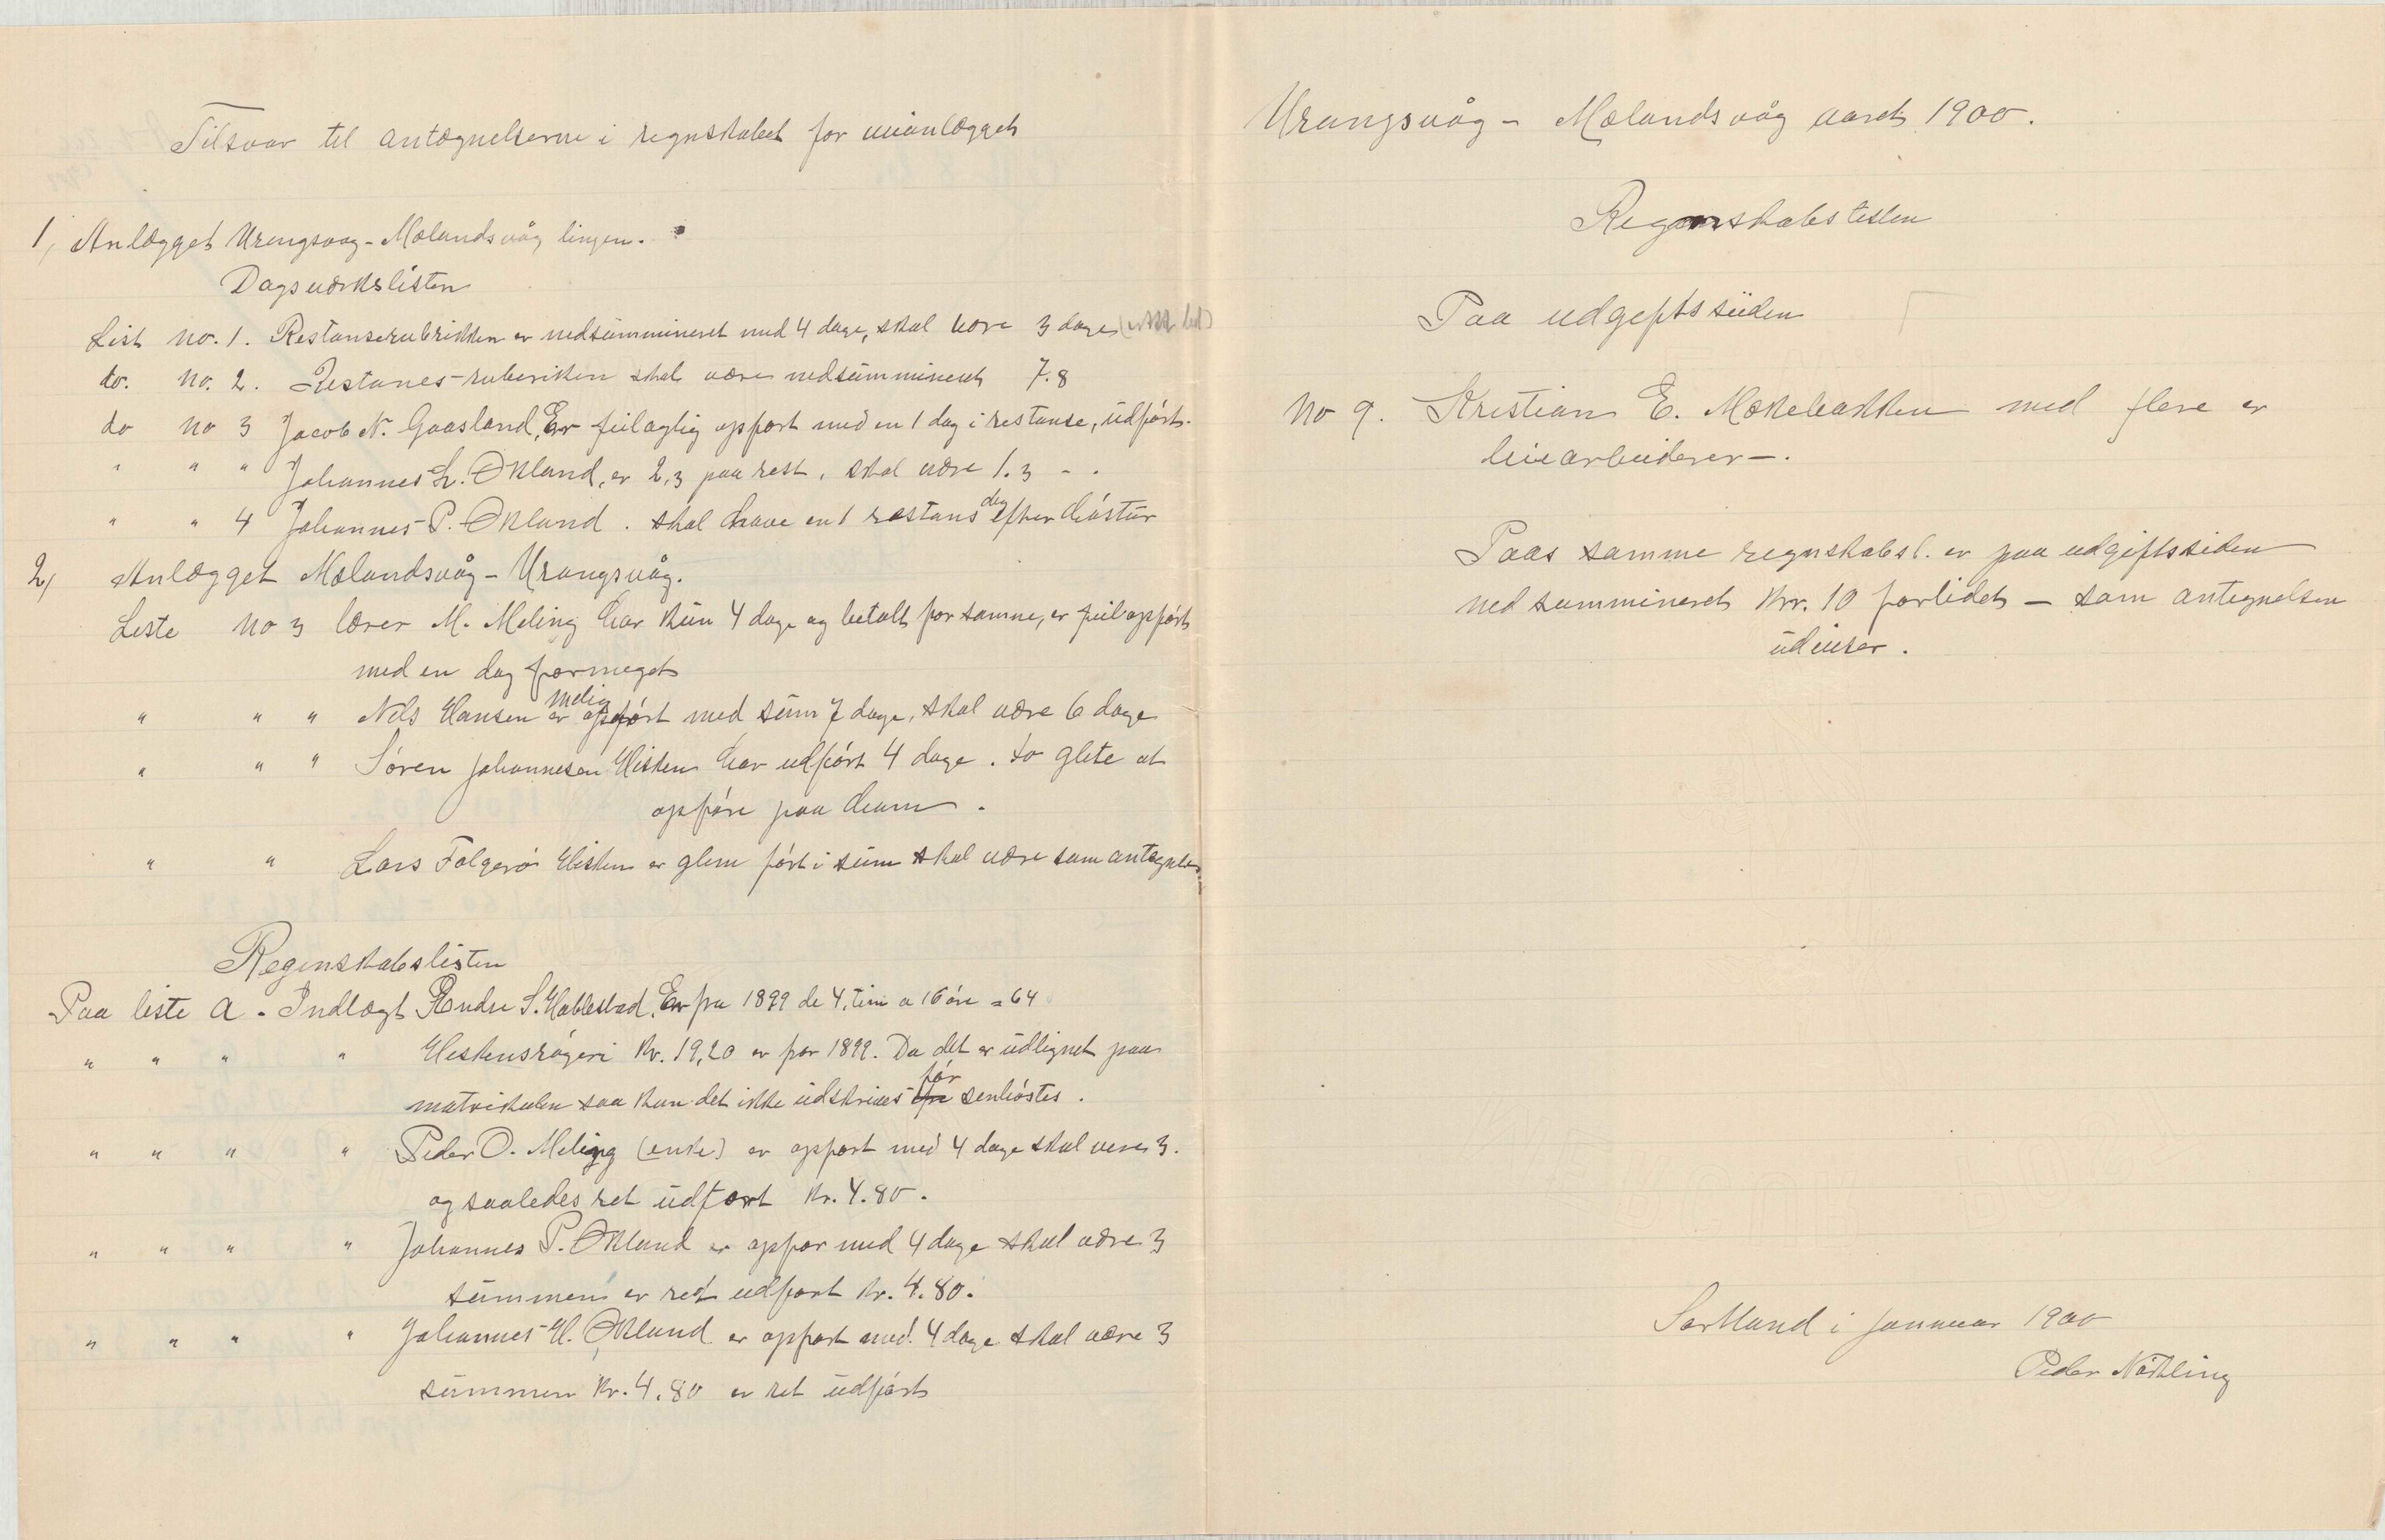 Tilsvar til antegnelserne i regnskabet for veianlægget
1, Anlægget Urangsvaag - Mælandsvåg linjen.
Dagsværkslisten
List No. 1. Restanserubrikken er nedsummineret med 4 dage, skal være 3 dage
do. No. 2. Restanes-ruberiken skal være nedsummineret 7.8
do No 3 Jacob N. Gaasland, Er feilagtig opført med en 1 dag i restanse, udført.
" " " Johannes L. Økland, er 2,3 paa rest. skal være 1.3 - .
" " 4 Johannes P. Økland. skal have en 1 restans dag efter høstur
2, Anlægget Mælandsvåg - Urangsvåg.
Leste No 3 lærer M. Meling har kun 4 dage og betalt for samme, er feilopført
med en dag formeget
" " " Nels Hansen Melin er opført med sum 7 dage, skal være 6 dage
" " " Søren Johannesen Hisken har udført 4 dage. to glete at
opføre paa ham.
" " Lars Folgerø Hisken er glem ført i sum skal være som antegnels
Regenskabslisten
Paa liste a - Indlægt Endre S. Hablestad, Er fra 1899 de 4, tim a 16 øre = 64
" " " " Heskensrøgeri Kr. 19,20 er for 1899. Da det er udlignet paa
matrikulen saa kan det ikke udskrives før senhøstes.
" " " " Peder O. Meling (enke) er opført med 4 dage skal vere 3.
og saaledes ret udført Kr. 4.80.
" " " " Johannes P. Økland er opfør med 4 dage skal være 3
summen er ret udført Kr. 4.80.
" " " " Johannes H. Økland er opført med. 4 dage skal være 3
summen Kr. 4.80 er ret udført
Urangsvåg - Mælandsvåg aaret 1900.
Regnskabslisten
Paa udgiftssiiden
No 9. Kristian E. Mækebakken med flere er
leiearbeiderer -.
Paas samme regnskabsl. er paa udgiftssiden
ned summineret Kr. 10 forlidet - som antegnelsen
udviser.
Sortland i Januar 1900
Peder